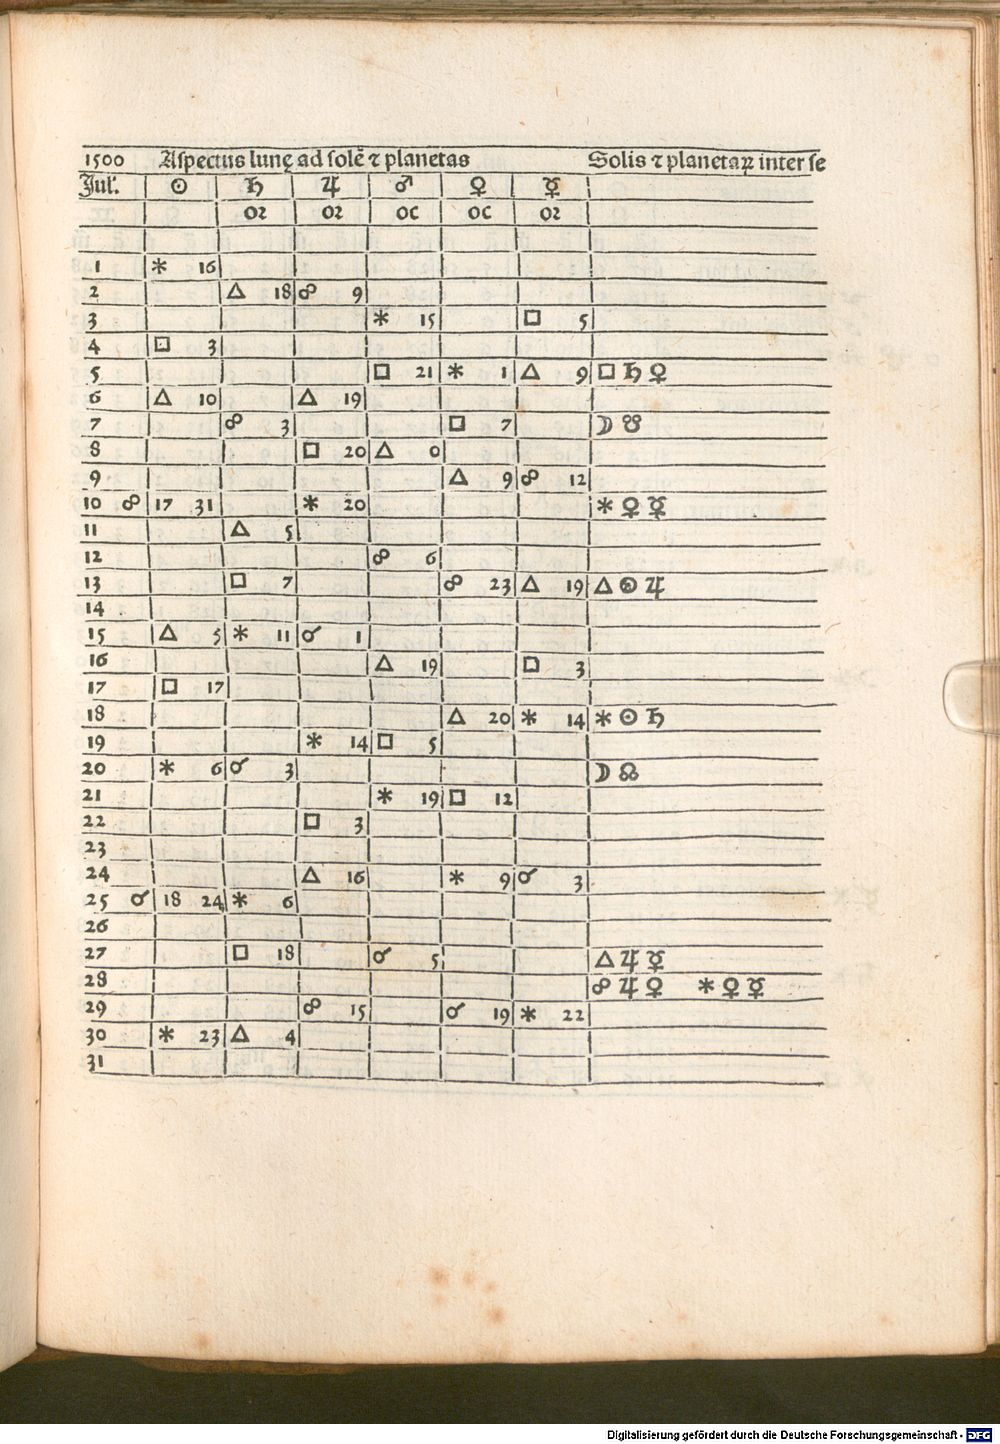 1500 Aspectus lunę ad solē ⁊ planetas Solis ⁊ planetaꝝ inter se
Jul'. ☉ ♄ ♃ ♂ ♀ ☿
oꝛ oꝛ oc oc oꝛ
1 ⚹ 16
2 △ 18 ☍ 9
3 ⚹ 15 □ 5
4 □ 3
5 □ 21 ⚹ 1 △ 9 □ ♄ ♀
6 △ 10 △ 19
7 ☍ 3 □ 7 ☽ ☋
8 □ 20 △ 0
9 △ 9 ☍ 12
10 ☍ 17 31 ⚹ 20 ⚹ ♀ ☿
11 △ 5
12 ☍ 6
13 □ 7 ☍ 23 △ 19 △ ☉ ♃
14
15 △ 5 ⚹ 11 ☌ 1
16 △ 19 □ 3
17 □ 17
18 △ 20 ⚹ 14 ⚹ ☉ ♄
19 ⚹ 14 □ 5
20 ⚹ 6 ☌ 3 ☽ ☊
21 ⚹ 19 □ 12
22 □ 3
23
24 △ 16 ⚹ 9 ☌ 3
25 ☌ 18 24 ⚹ 6
26
27 □ 18 ☌ 5 △ ♃ ☿
28 ☍ ♃ ♀ ⚹ ♀ ☿
29 ☍ 15 ☌ 19 ⚹ 22
30 ⚹ 23 △ 4
31
Digitalisierung gefördert durch die Deutsche Forschungsgemeinschaft - DFG